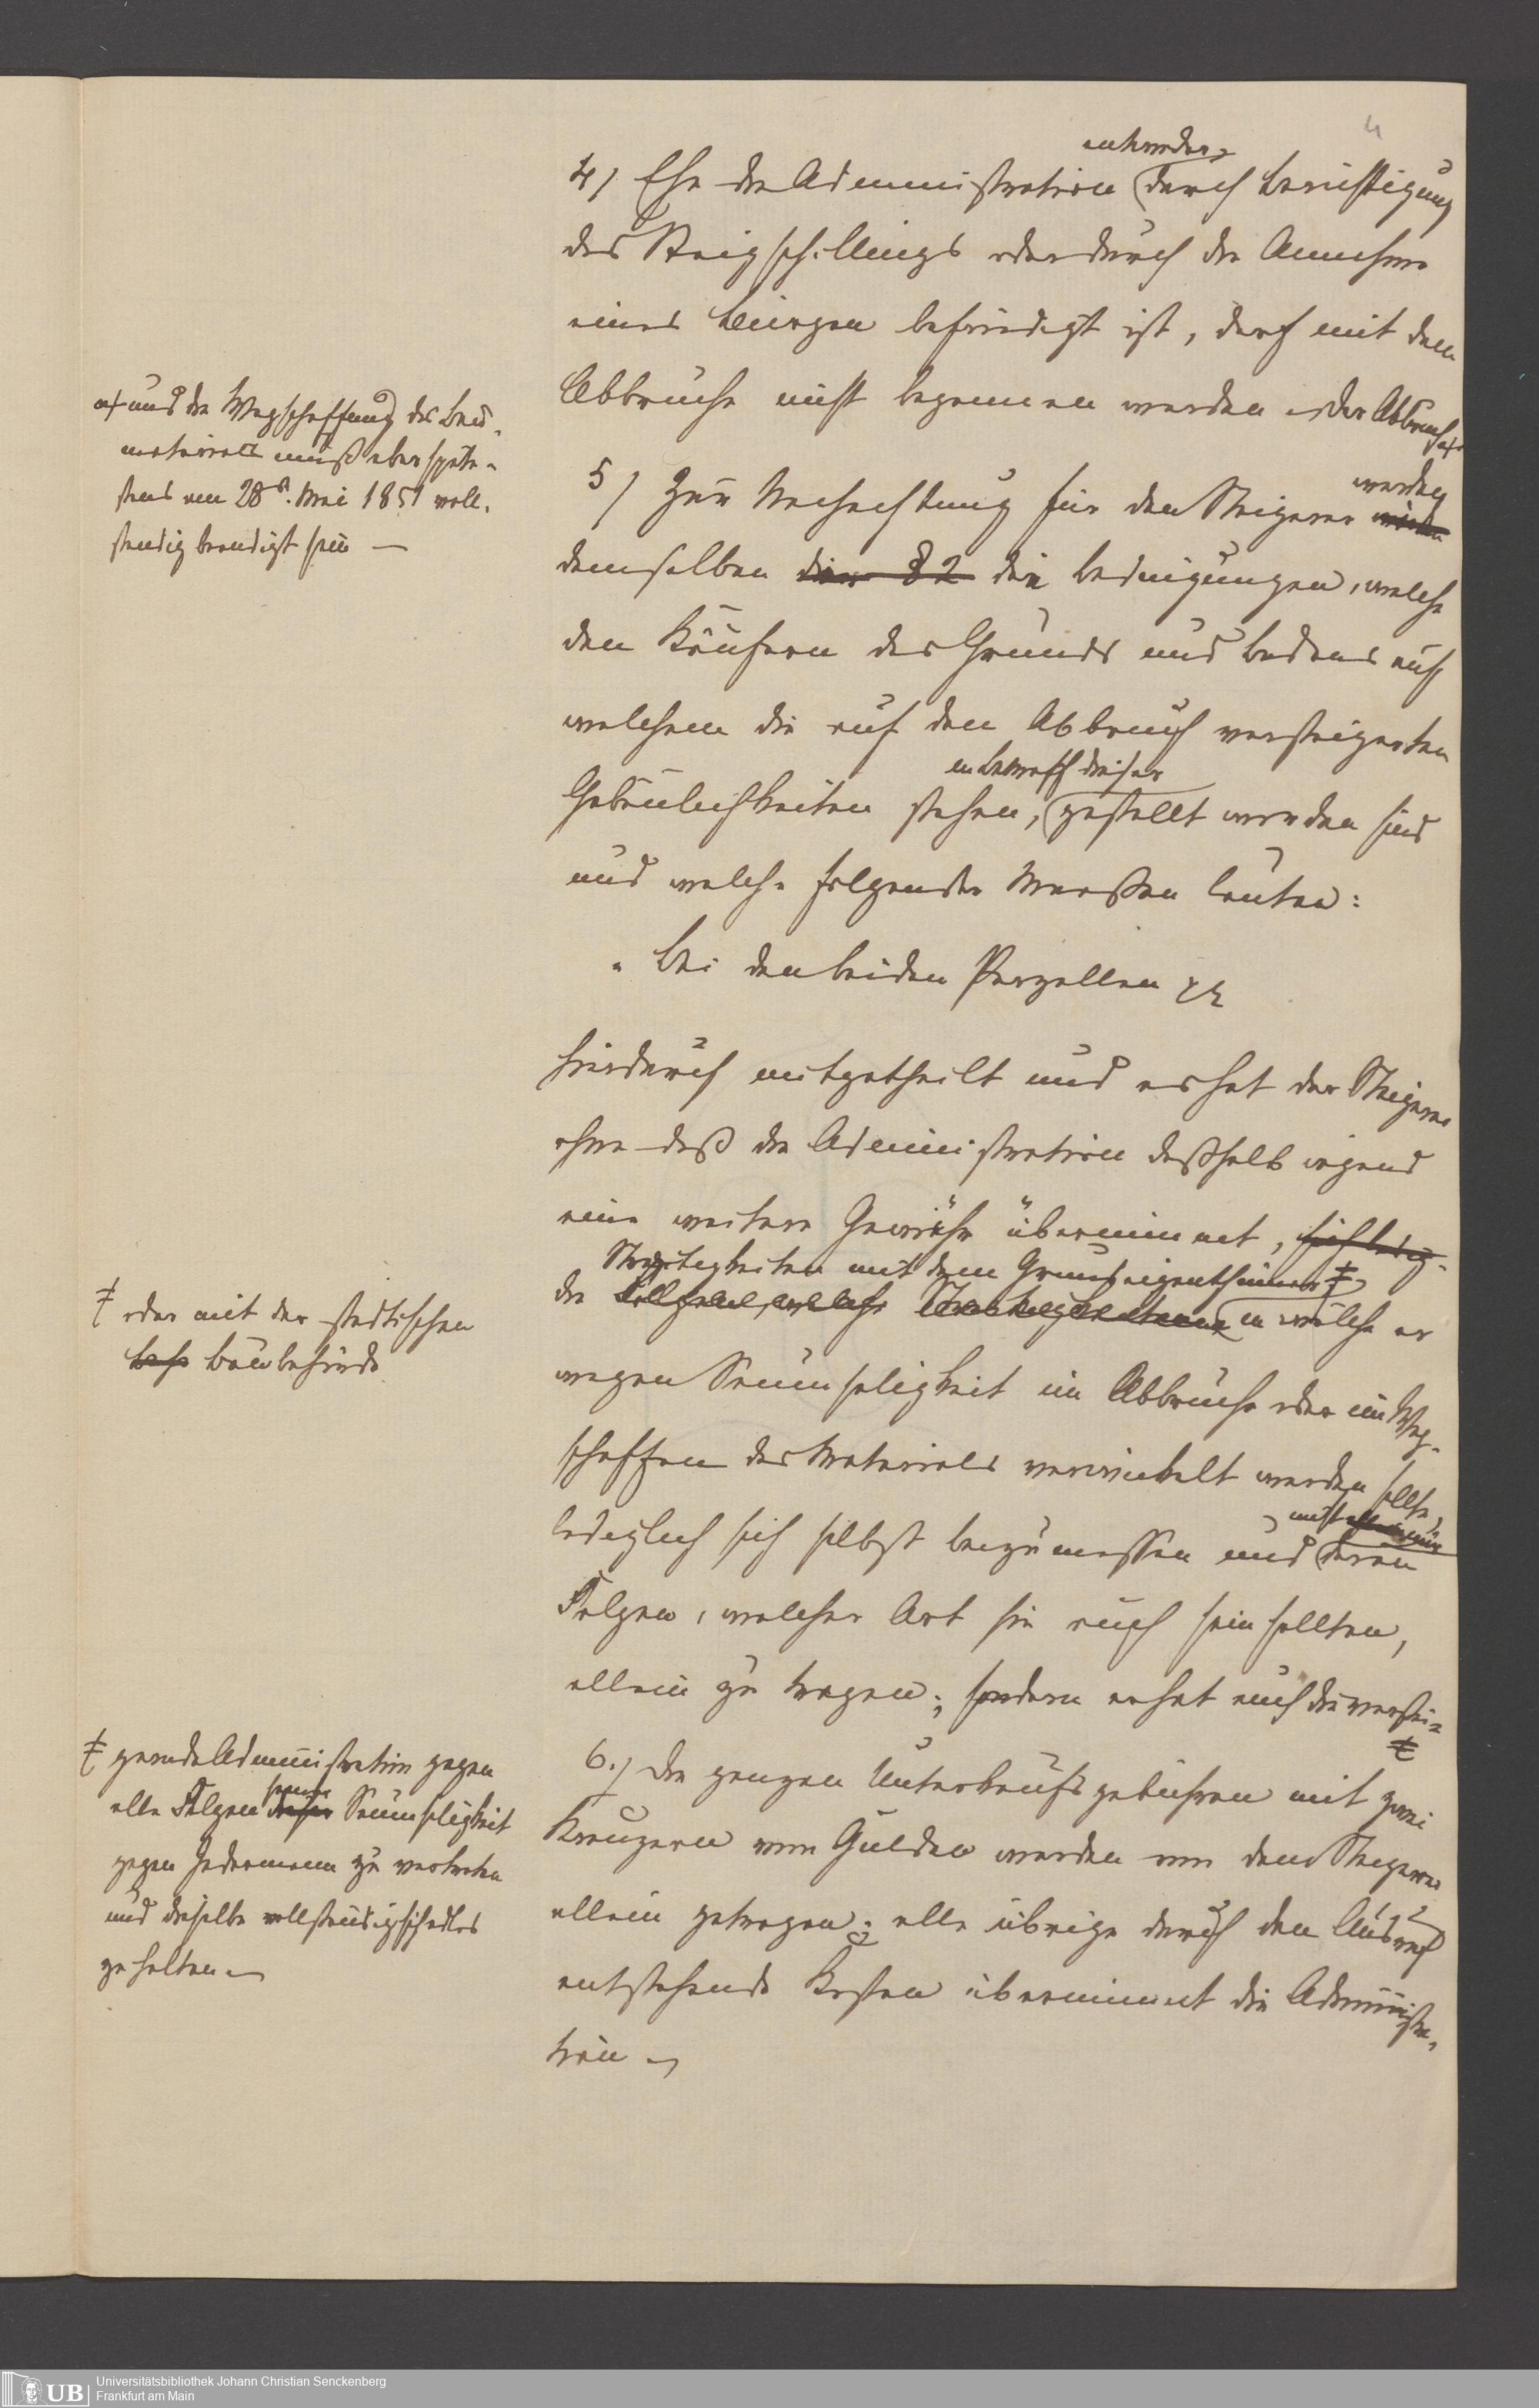 4
entweder
4) Ehe die Administration durch Berichtigung
des Steigschillings oder durch die Annahme
eines Bürgen befriedigt ist, darf mit dem
Abbruche nicht begonnen werden – der Abbruch
und die Wegschaffung des Bau-
materials muß aber späte-
stens am 28n. Mai 1851 voll-
ständig beendigt sein —
werden
5) Zur Nachachtung für den Steigerer
demselben § 2 die Bedingungen, welche
den Käufern des Grunds und Bodens auf
welchem die auf den Abbruch versteigerten
in Betreff dieser
Gebäulichkeiten stehen, gestellt worden sind
und welche folgender Maaßen lauten:
„Bei den beiden Parzellen
hierdurch mitgetheilt und es hat der Steigerer
ohne daß die Administration deßhalb irgend
eine weitere Gewähr übernimmt, sich ledig-
Streitigkeiten mit dem Grundeigenthümer
die Streitigkeiten in welche er
oder mit der städtischen
Baubehörde
wegen Saumseligkeit im Abbruche oder im Weg-
schaffen des Materials verwickelt werden sollte,
lediglich sich selbst beizumessen und
nicht deren
Folgen, welcher Art sie auch sein sollten,
allein zu tragen; sondern er hat auch die
gerade Administration gegen
alle Folgen seiner Saumseligkeit
gegen Jedermann zu vertreten
und dieselbe vollständig schadlos
zu halten.
6.) Die ganzen Unterkaufsgebühren mit zwei
Kreuzern vom Gulden werden von dem Steigerer
allein getragen; alle übrige durch den Ausruf
entstehende Kosten übernimmt die Administra-
tion
UB Universitätsbibliothek Johann Christian Senckenberg
Frankfurt am Main